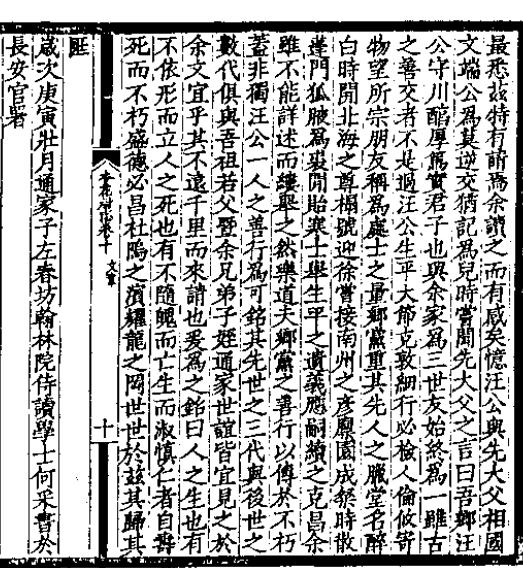 最悉茲特有請焉余讀之而有感矣憶汪公與先大父相國
文端公為莫逆交猶記為兒時嘗聞先大父之言曰吾鄉汪
公守川醕厚篤實君子也與余家為三世友始終為一雖古
之善交者不是過汪公生平大節克敦細行必檢人倫攸寄
物望所宗朋友稱為廊士之量鄉黨重其先人之 堂名醉
白時開北海之尊榻號迎徐嘗接南州之彥廩園成粲時散
蓬門狐腋為裘閒貽寒士舉生平之遺義應嗣續之克昌余
雖不能詳述而縷舉之然樂道夫鄉黨之善行以傳於不朽
蓋非獨汪公一人之善行為可銘其先世之三代與後世之
數代俱與吾祖若父暨余兄弟子姪通家世誼皆宜見之於
余文宜乎其不遠千里而來請也爰為之銘曰人之生也有
不依形而立人之死也有不隨魄而亡生而淑慎仁者自壽
死而不朽盛德必昌杜隖之濱耀龍之岡世世於茲其歸其
卷十 文章
十
旺
歲次庚寅壯月通家子左春坊翰林院侍讀學士何采書於
長安官署